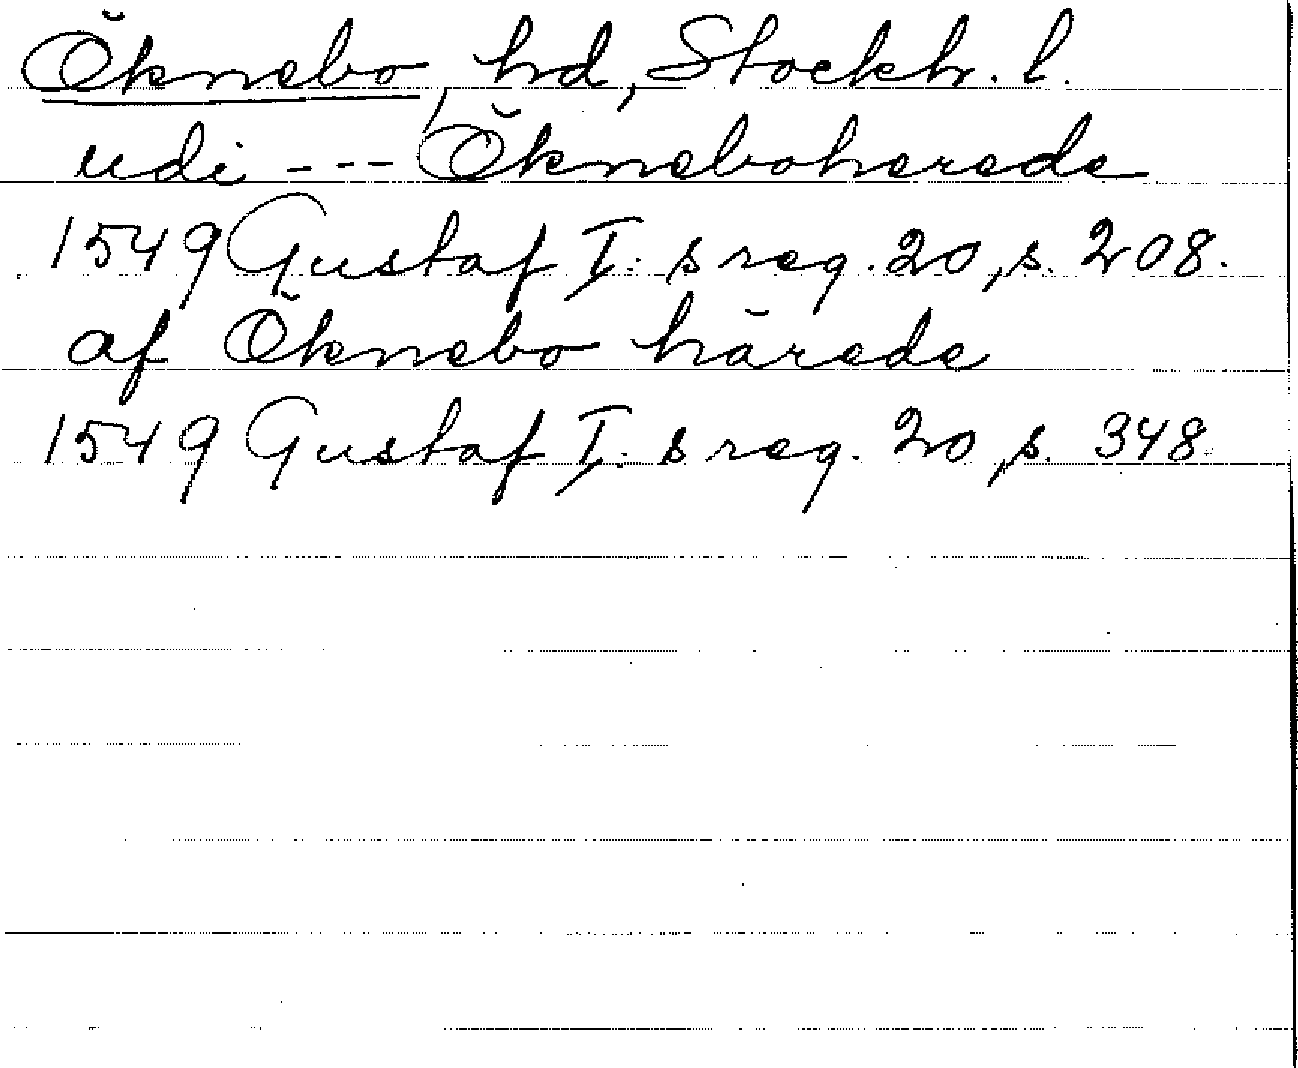 Öknebo, hd, Stockh. l.
udi ---Ökneboherede
1549 Gustaf I:s reg. 20, s. 208.
af Öknebo härede
1549 Gustaf I:s reg. 20, s. 348